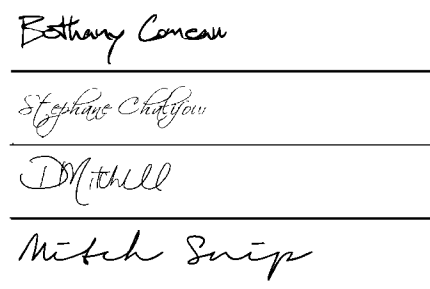 Bethany Comeau
Stephane
DMitchell
Mitch Snip